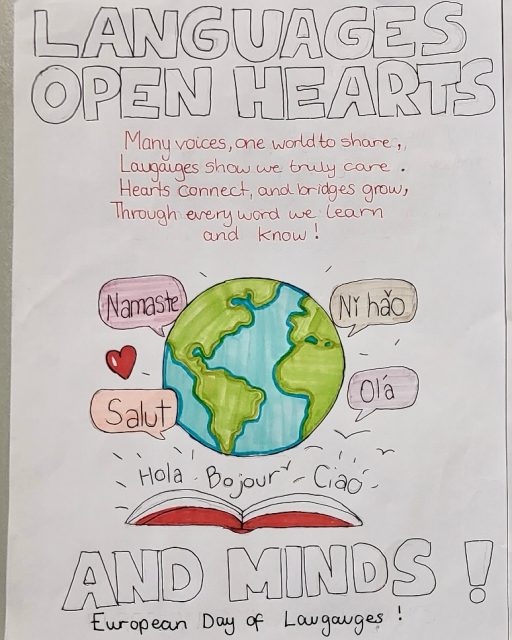 LANGUAGES
OPEN HEARTS
Many voices, one world to share,
Laugauges show we truly care.
Hearts connect, and bridges grow,
Through every word we learn
and know!
Namaste
Nǐ hǎo
Salut
Olá
Hola Bojour Ciao
AND MINDS!
European Day of Laugauges!